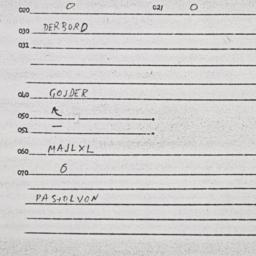 020 0 021 0
030 DERBORD
031
040 GOJDER
050
051 —
060 MAJLXL
070 6
PASTOLVON